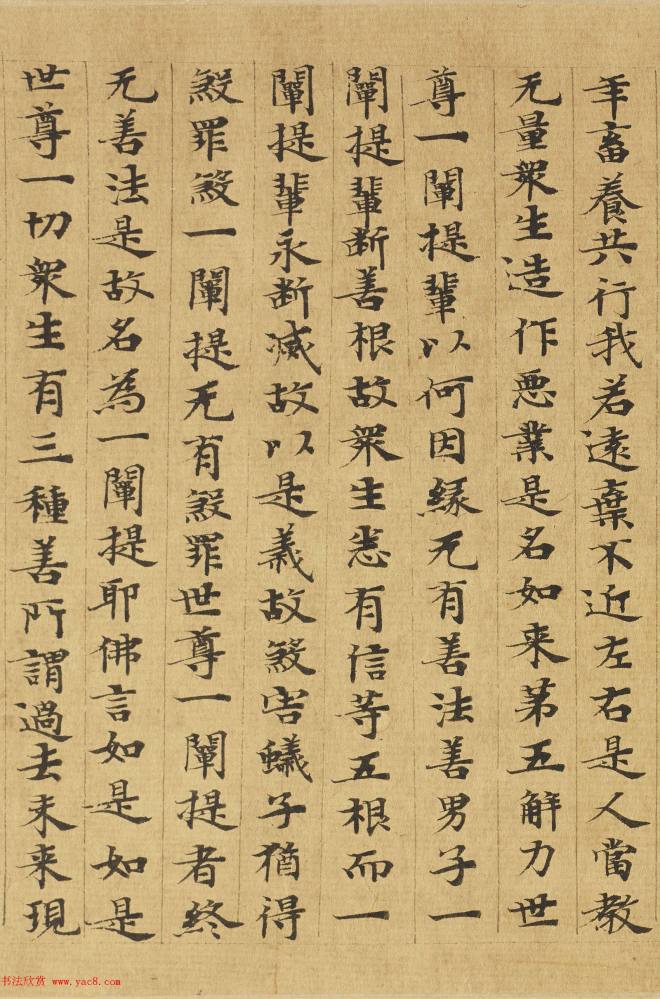 年畜養共行我若遠棄不近左右是人當教
无量衆生造作惡業是名如来第五解力世
尊一闡提輩以何因緣无有善法善男子一
闡提輩断善根故衆生悉有信等五根而一
闡提輩永断滅故以是義故煞害蟻子猶得
煞罪煞一闡提无有煞罪世尊一闡提者終
无善法是故名為一闡提耶佛言如是如是
世尊一切衆生有三種善所謂過去未来現
书法欣赏 www.yac8.com